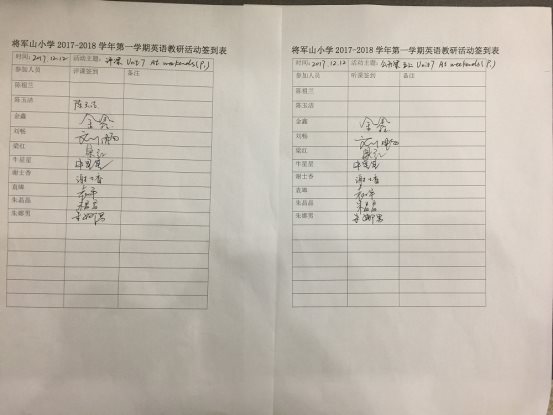 将军山小学 2017-2018 学年第一学期英语教研活动签到表
时间：2017.12.12 活动主题：评课 Unit7 At weekends(P.)
参加人员 评课签到 备注
陈祖兰
陈玉洁 陈玉洁
金鑫 金鑫
刘畅 刘畅
梁红 梁红
牛星星 牛星星
谢士香 谢士香
袁琳
朱晶晶 朱晶晶
朱娜男 朱娜男
将军山小学 2017-2018 学年第一学期英语教研活动签到表
时间：2017.12.12 活动主题：公开课 五上 Unit7 At weekends(P.)
参加人员 听课签到 备注
陈祖兰
陈玉洁
金鑫 金鑫
刘畅 刘畅
梁红 梁红
牛星星 牛星星
谢士香 谢士香
袁琳
朱晶晶 朱晶晶
朱娜男 朱娜男